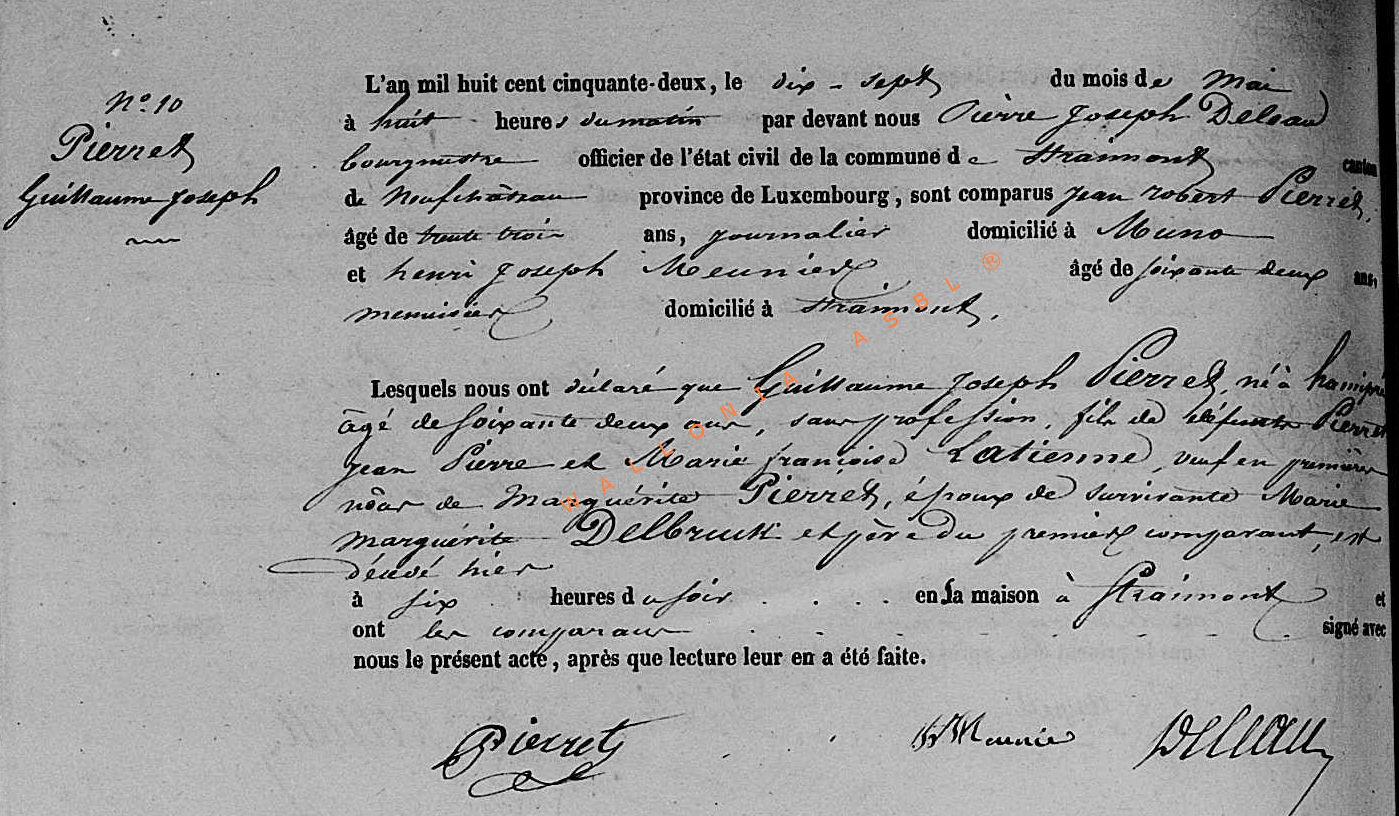 N° 10
Pierret
Guillaume Joseph
L'an mil huit cent cinquante-deux, le dix-sept du mois de Mai
à huit heures du matin par devant nous Pierre Joseph Deleau
bourgmestre officier de l'état civil de la commune de Straimont canton
de Neufchâteau province de Luxembourg, sont comparus jean robert Pierret,
âgé de trente trois ans, journalier domicilié à Muno
et henri Joseph Meunier âgé de soixante deux ans,
menuisier domicilié à Straimont.
Lesquels nous ont déclaré que Guillaume Joseph Pierret, né à hamipré
âgé de soixante deux ans, sans profession, fils de défunts Pierret
jean Pierre et Marie françoise Latienne, veuf en premières
nôces de Marguérite Pierret, époux de survivante Marie
Marguérite Delbruck et père du premier comparant, est
décédé hier
à six heures du soir . . . . en sa maison à Straimont et
ont les comparans signé avec
nous le présent acte, après que lecture leur en a été faite.
Pierret Meunier Deleau
WALLONIA ASBL ®